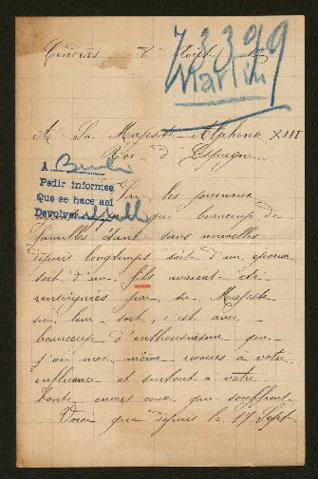 73399
Martin
A Sa Majesté Alphonse XIII
Roi d'Espagne
A
Pedir informes
Que se hace así
Devolver
Par les journaux
que beaucoup de
familles étant sans nouvelles
depuis longtemps soit d'un époux
soit d'un fils avaient été
renseignées par sa Majesté
sur leur sort, c'est avec
beaucoup d'enthousiasme que
j'ai moi même recours à votre
influence et surtout à votre
bonté envers ceux qui souffrent
Voici que depuis le 17 Sept